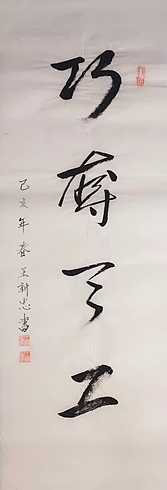 巧夺天工
乙亥年春王新忠書